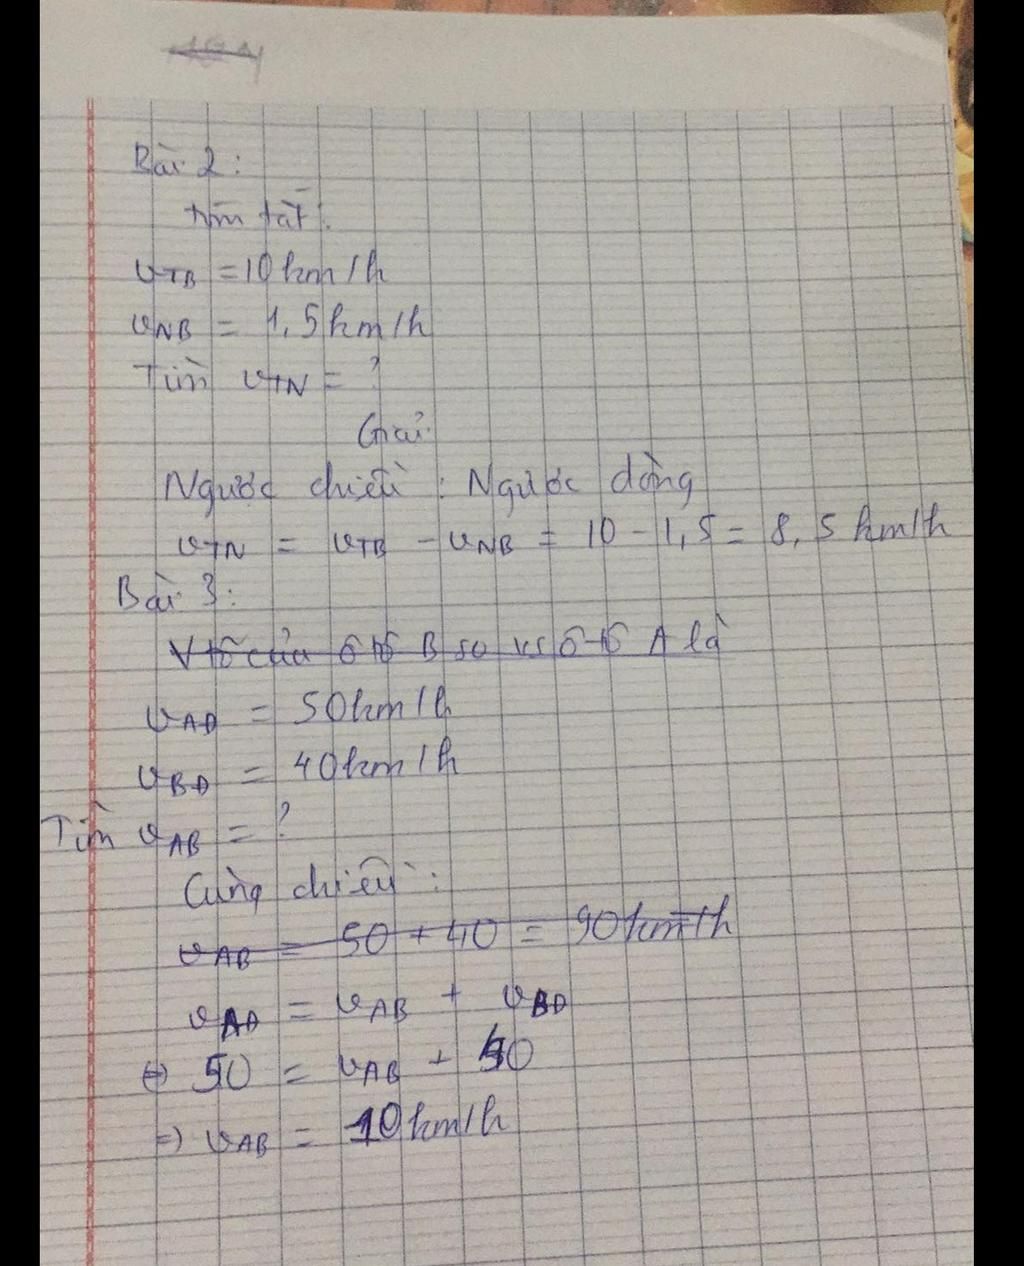 Bài 2:
tóm tắt:
vTB = 10 km/h
vNB = 1,5 km/h
Tìm vTN = ?
Giải
Ngược chiều : Ngược dòng
vTN = vTB - vNB = 10 - 1,5 = 8,5 km/h
Bài 3:
V tố của ô tô B so vs ô tô A là
vAĐ = 50km/h
vBĐ = 40km/h
Tìm vAB = ?
Cùng chiều :
vAB = 50 + 40 = 90km/h
vAĐ = vAB + vBĐ
⇔ 50 = vAB + 40
⇒ vAB = 10km/h